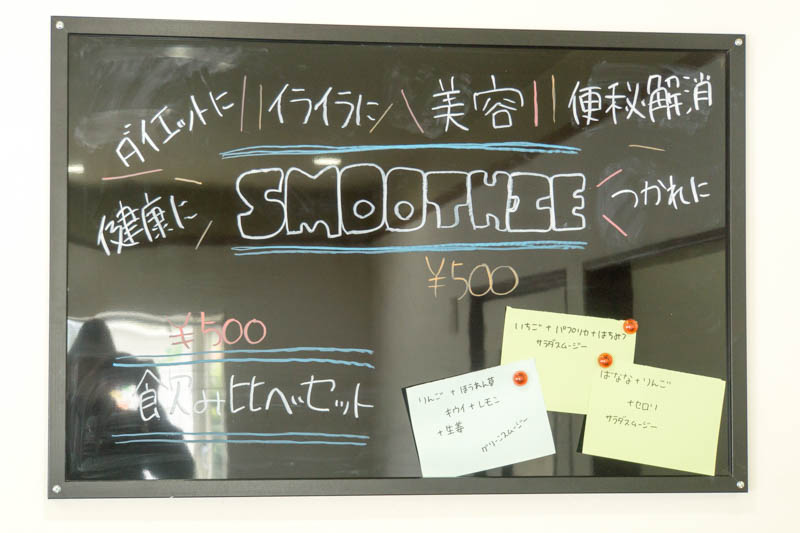 ダイエットに イライラに 美容 便秘解消
健康に SMOOTHIE つかれに
¥500
¥500
飲み比べセット
いちご+パプリカ+はちみつ
サラダスムージー
りんご+ほうれん草
キウイ+レモン
+生姜
グリーンスムージー
ばなな+りんご
+セロリ
サラダスムージー